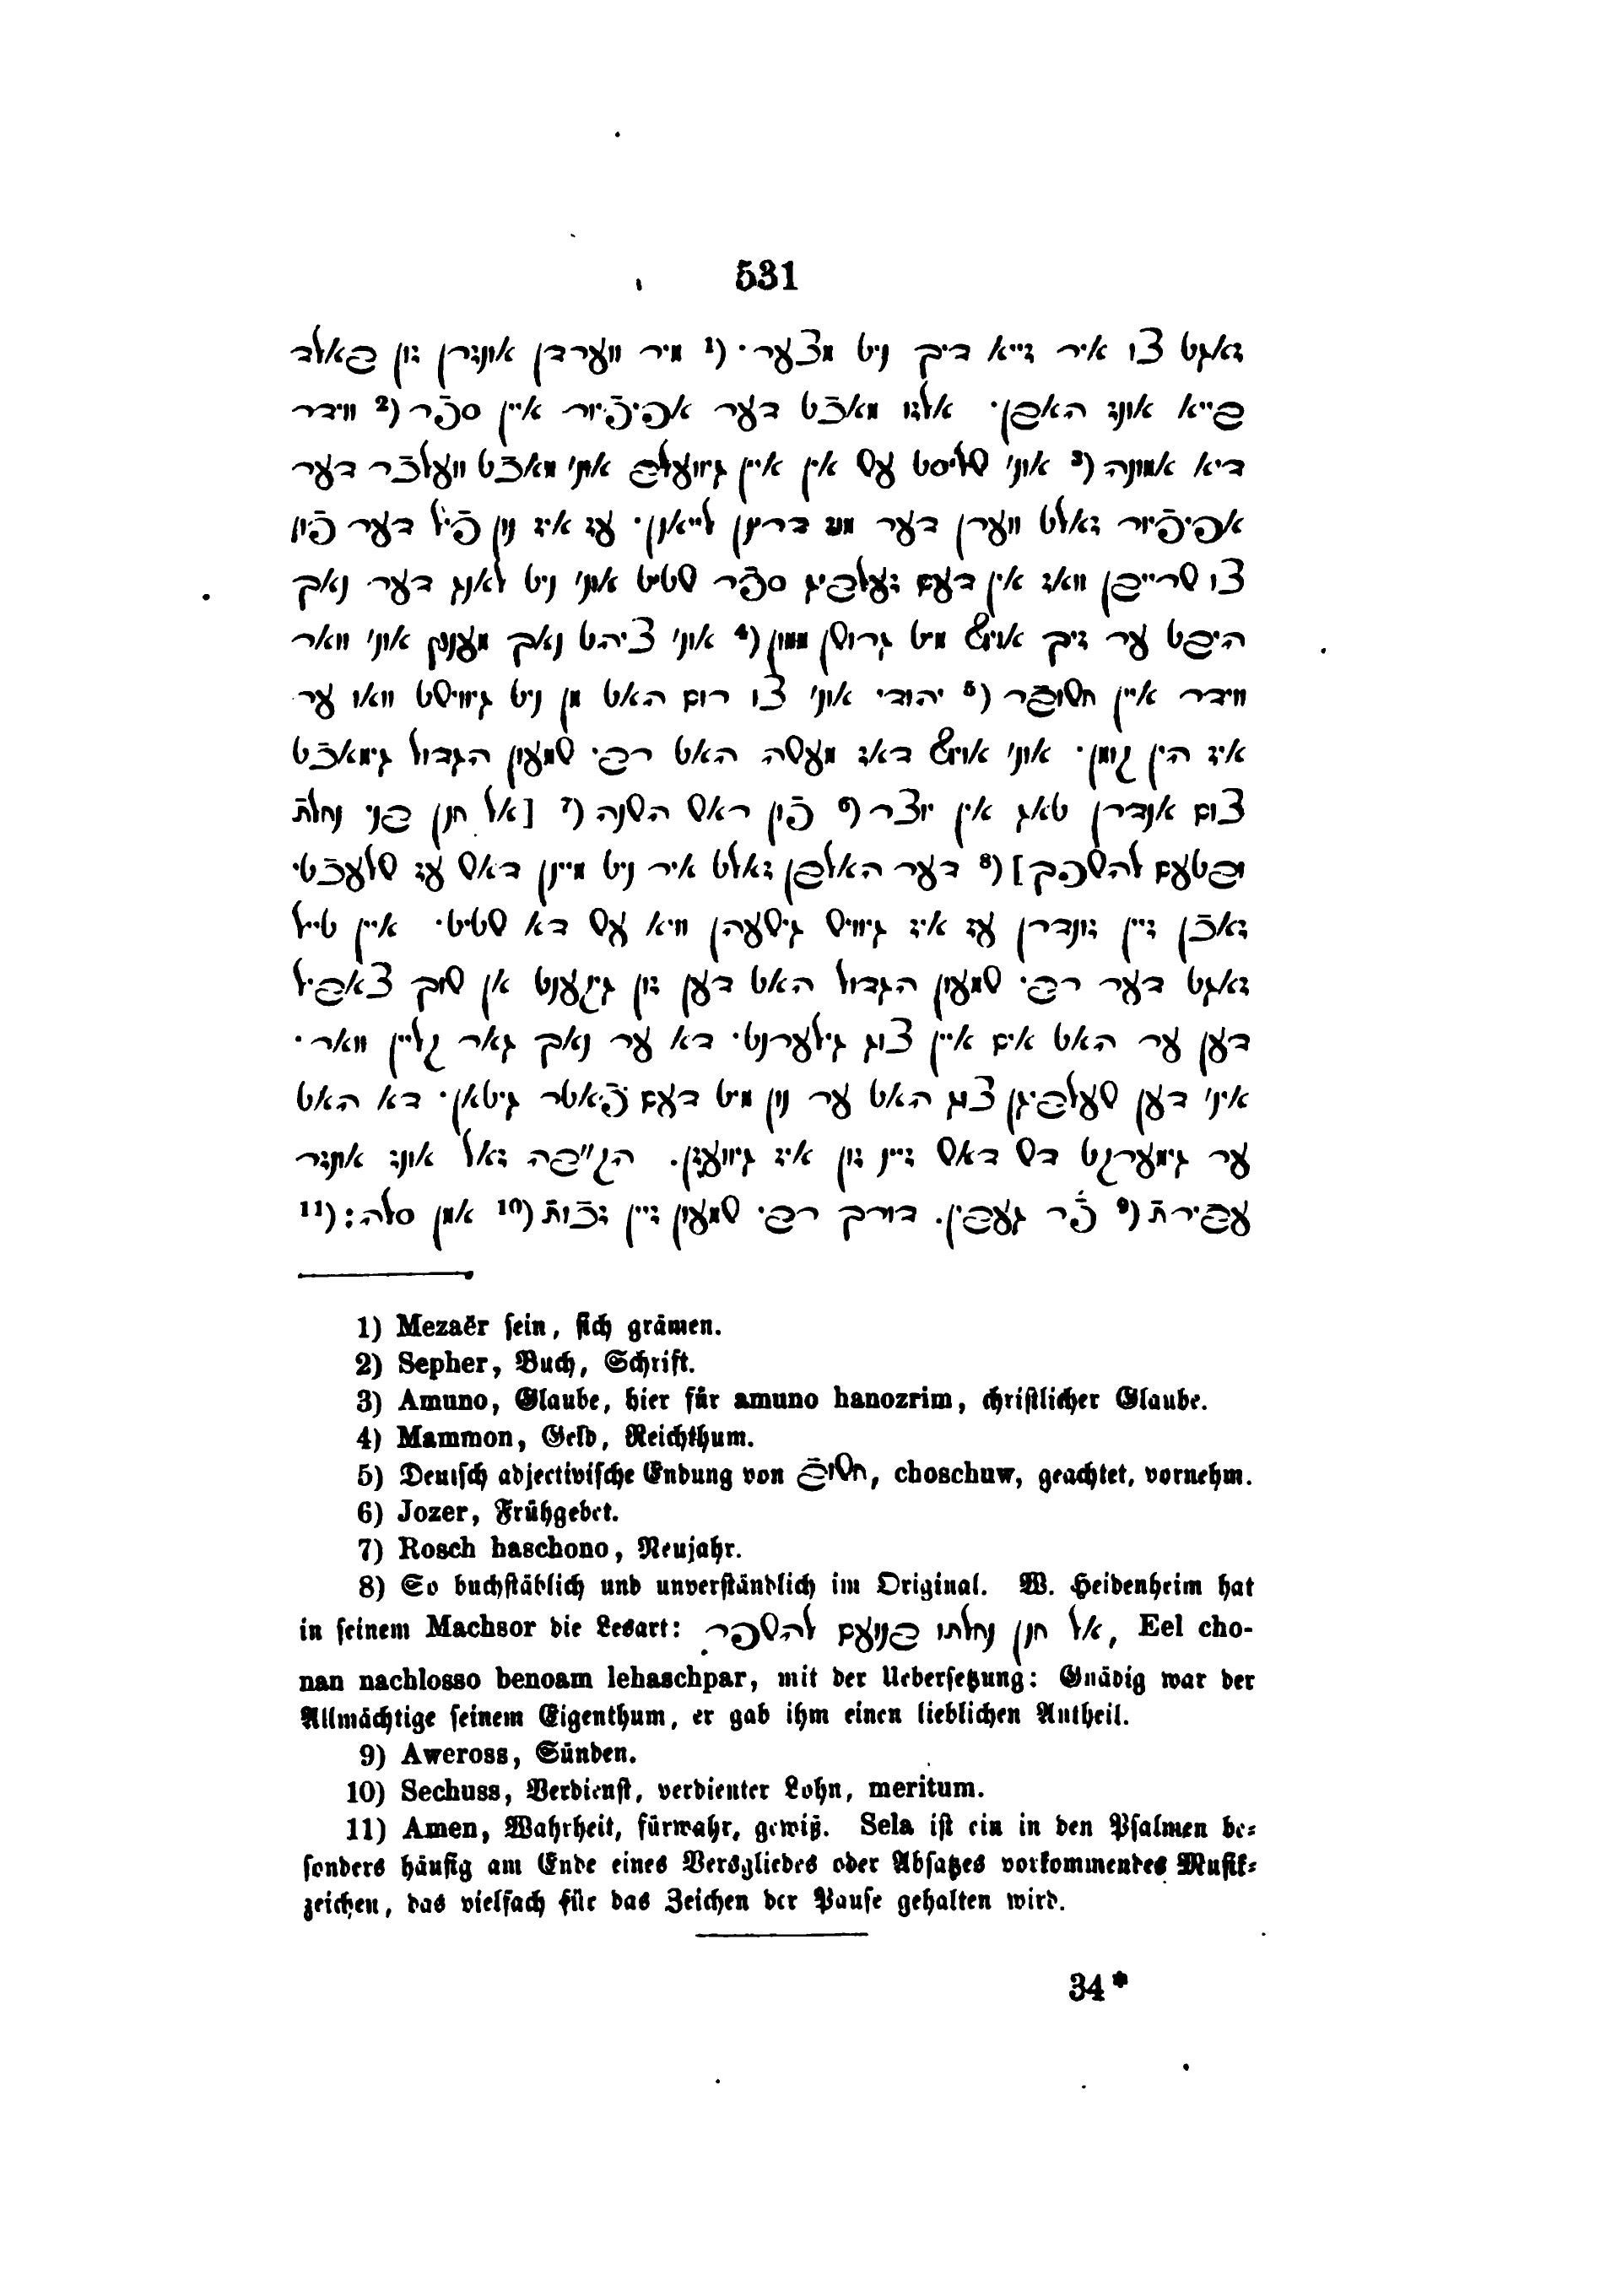 531
זאגט צו איר זייא דיך ניט מצער· (1 מיר ווערדן אונזרן זון באלד
בייא אונז האבן· אלזו מאכֿט דער אפיפֿיור איין ספֿר (2 ווידר
דיא אמונה (3 אונ' שליסט עש אין איין גיוועלב אונ' מאכֿט וועלכֿר דער
אפיפֿיור זאלט ווערן דער מוש דרינן לייאנן· עז איז נון פֿיל דער פֿון
צו שרייבן וואז אין דעם זעלביג ספֿר שטיט אונ' ניט לאנג דער נאך
היבט ער זיך אויף מיט גרושן ממון (4 אונ' ציהט נאך מענץ אונ' וואר
ווידר איין חשובֿר (5 יהודי אונ' צו רום האט מן ניט גיוויסט וואו ער
איז הין קומן· אונ' אויף דאז מעשה האט רבי שמעון הגדול גימאכֿט
צום אנדרן טאג אין יוצר (6 פֿון ראש השנה (7 [אל חנן פני נחלת
ובטעם להשפך] (8 דער האלבן זאלט איר ניט מיינן דאש עז שלעכֿט·
זאכֿן זיין זונדרן עז איז גיוויס גישעהן וויא עש דא שטיט· איין טייל
זאגט דער רבי שמעון הגדול האט דען זון גיקענט אן שוך צאביל
דען ער האט אים איין צוג גילערנט· דא ער נאך גאר קליין וואר·
אינ' דען סעלביגן צוג האט ער נון מיט דעם פֿאטר גיטאן· דא האט
ער גימערקט דש דאש זיין זון איז גיוועזן. הק״בה זאל אונז אונזר
עבירת (9 פֿר געבין. דורך רבי שמעון זיין זכֿות (10 אמן סלה: (11
1) Mezaër sein, sich grämen.
2) Sepher, Buch, Schrift.
3) Amuno, Glaube, hier für amuno hanozrim, christlicher Glaube.
4) Mammon, Geld, Reichthum.
5) Deutsch adjectivische Endung von חשובֿ, choschuw, geachtet, vornehm.
6) Jozer, Frühgebet.
7) Rosch haschono, Neujahr.
8) So buchstäblich und unverständlich im Original. W. Heidenheim hat
in seinem Machsor die Lesart: אל חנן נחלתו בנועם להשפר, Eel cho-
nan nachlosso benoam lehaschpar, mit der Uebersetzung: Gnädig war der
Allmächtige seinem Eigenthum, er gab ihm einen lieblichen Antheil.
9) Aweross, Sünden.
10) Sechuss, Verdienst, verdienter Lohn, meritum.
11) Amen, Wahrheit, fürwahr, gewiß. Sela ist ein in den Psalmen be-
sonders häufig am Ende eines Versgliedes oder Absatzes vorkommendes Musik-
zeichen, das vielfach für das Zeichen der Pause gehalten wird.
34*